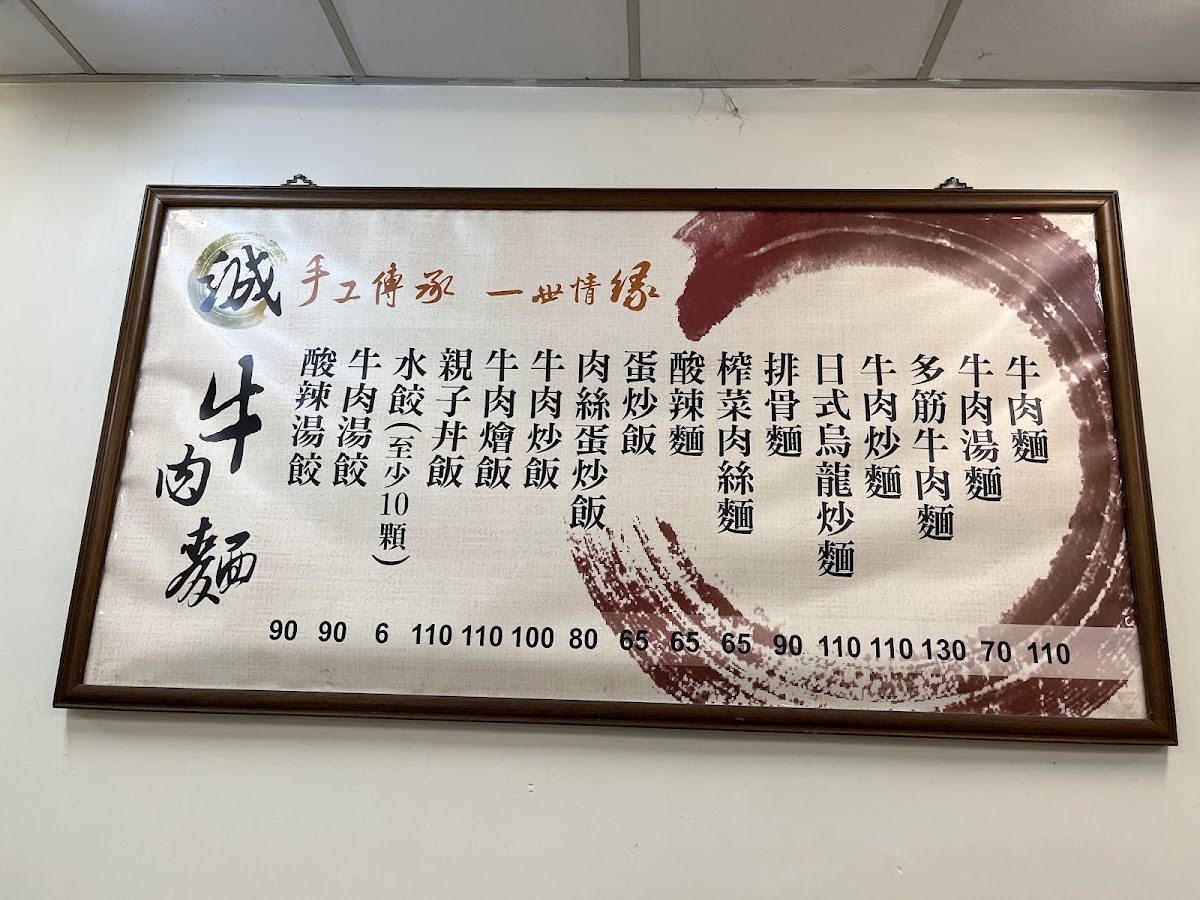 誠
手工傳承 一世情緣
牛肉麵
牛肉麵
牛肉湯麵
多筋牛肉麵
牛肉炒麵
日式烏龍炒麵
排骨麵
榨菜肉絲麵
酸辣麵
蛋炒飯
肉絲蛋炒飯
牛肉炒飯
牛肉燴飯
親子丼飯
水餃(至少10顆)
牛肉湯餃
酸辣湯餃
90 90 6 110 110 100 80 65 65 65 90 110 110 130 70 110